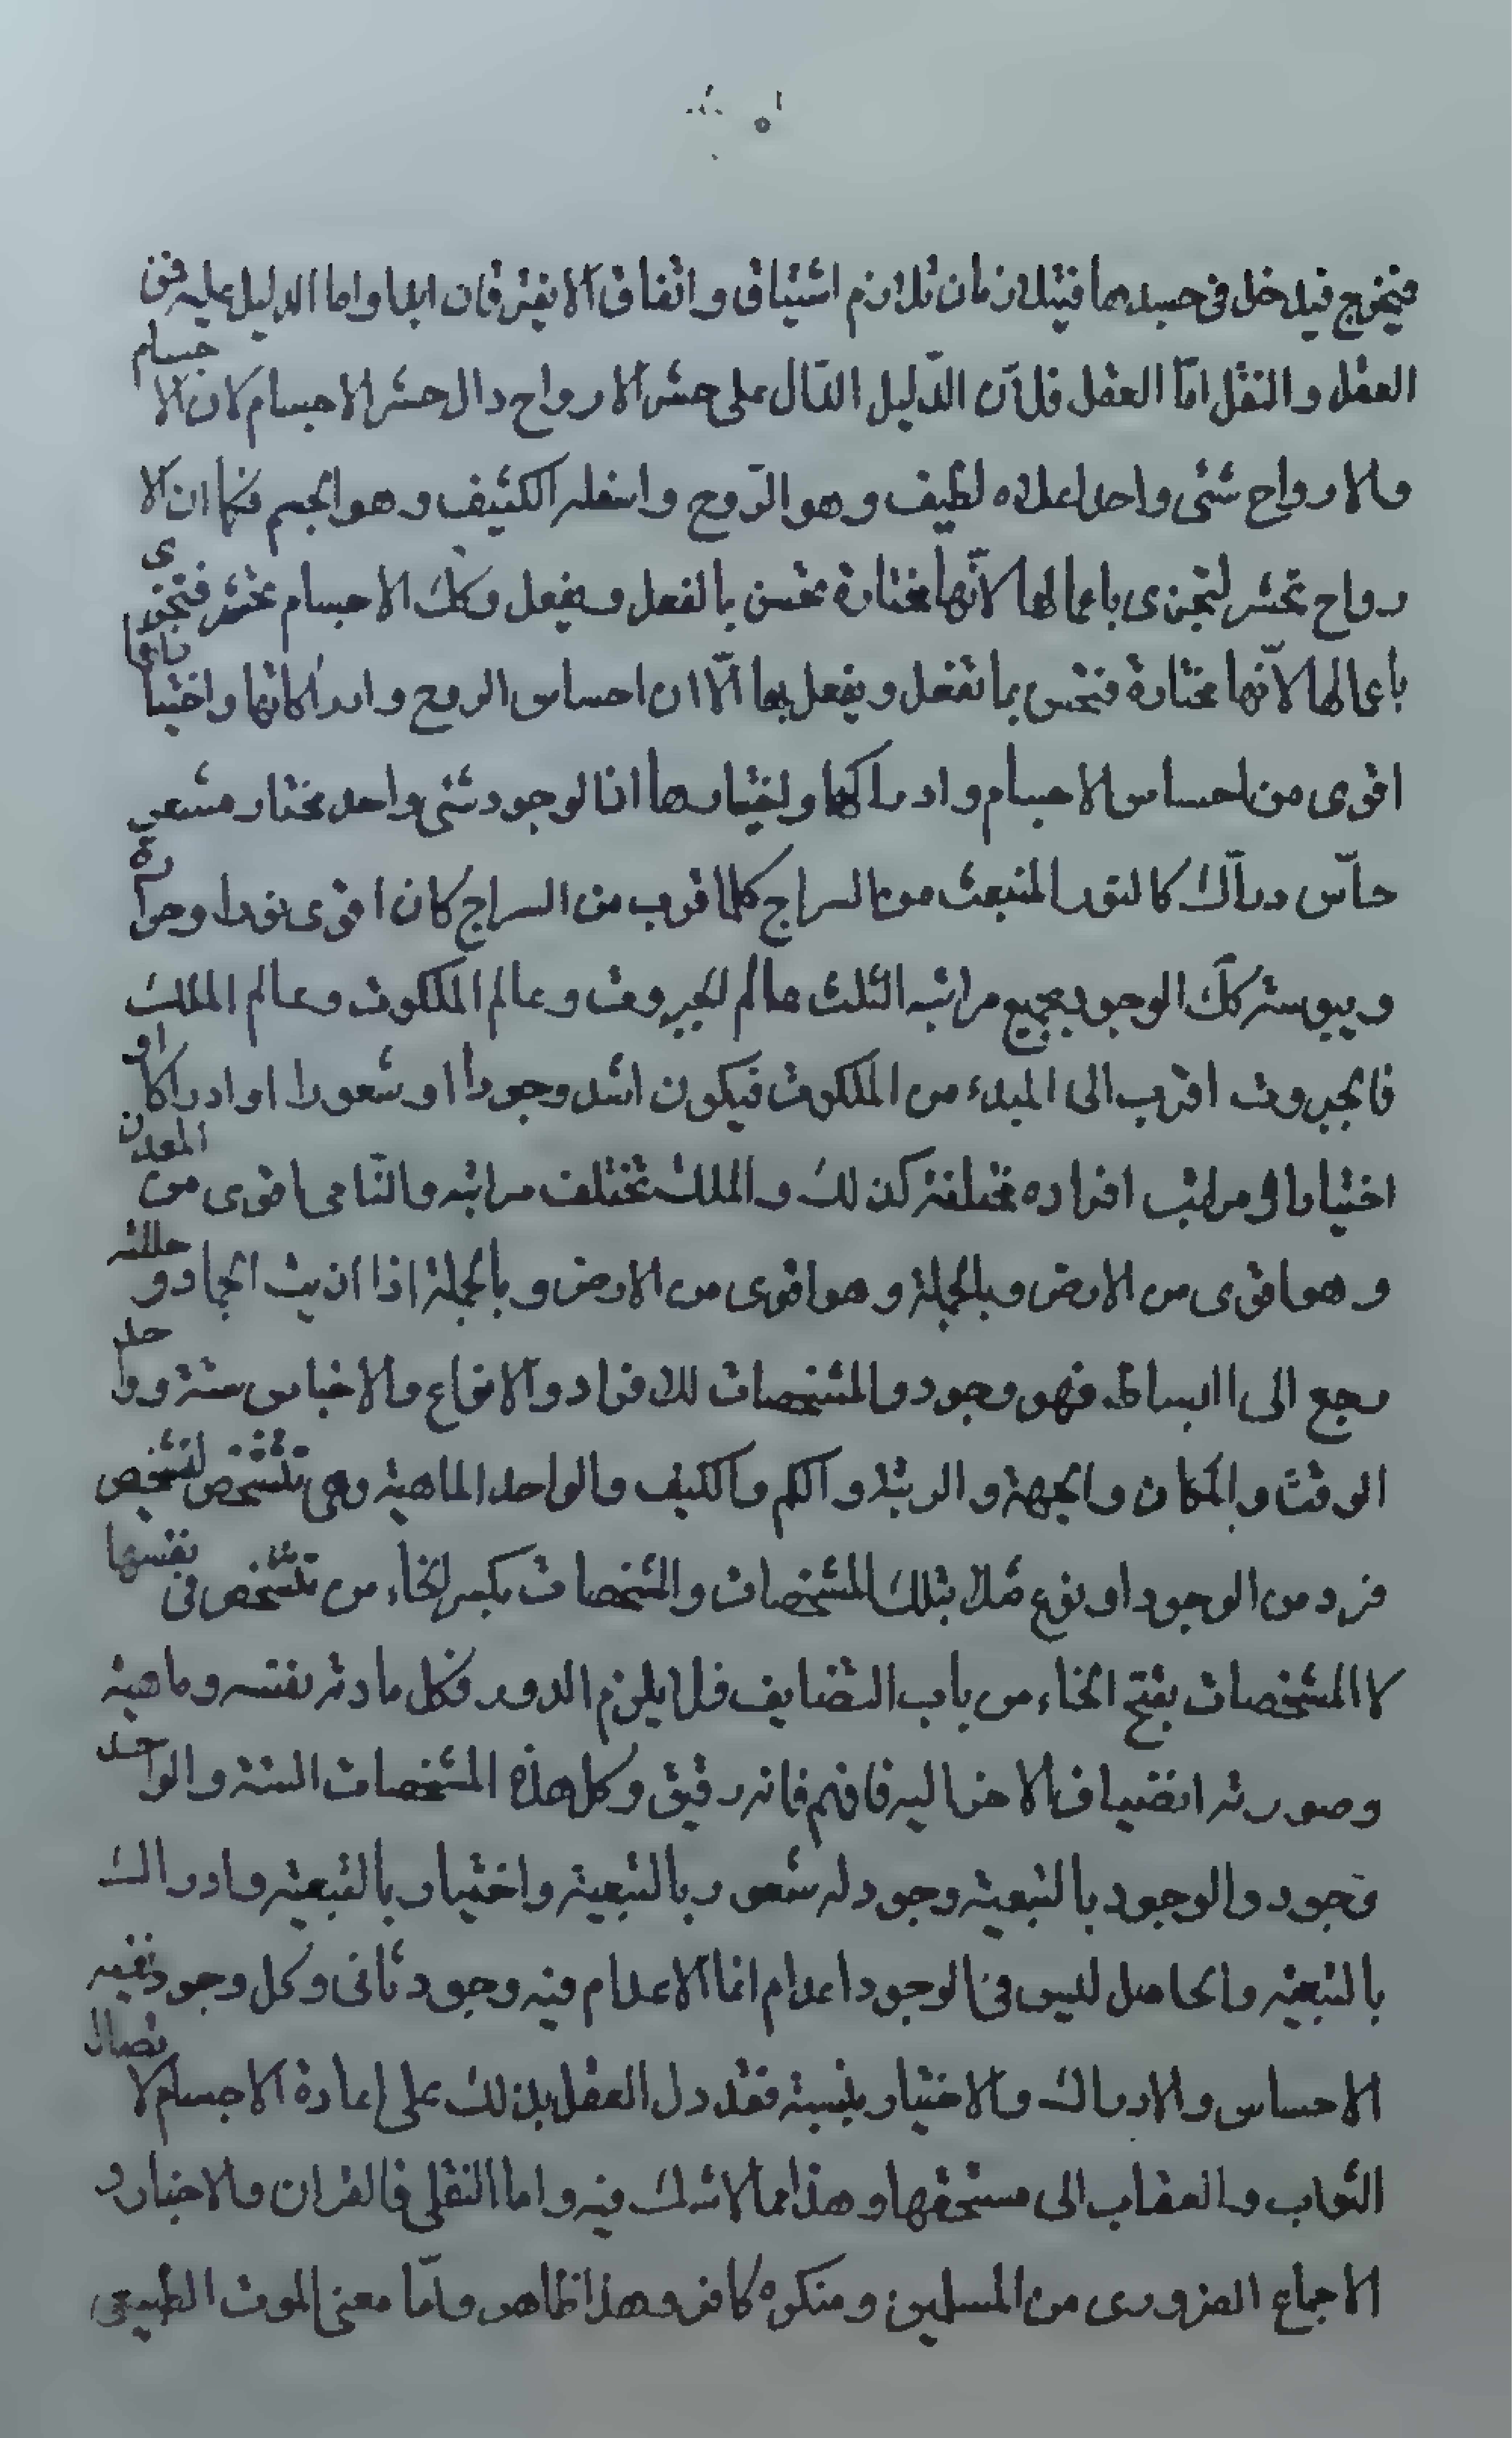 فيخرج فيدخل في جسدهما فيتلازمان تلازم اشتياق واتفاق لا يفترقان ابدا واما الدليل عليه فمن
العقل والنقل امّا العقل فلانّ الدّليل الدّال على حشر الارواح دال حشر الاجسام لان الاجسام
والارواح شئى واحد اعلاه لطيف وهو الرّوح واسفله الكثيف وهو الجسم فكما ان الا
رواح تحشر لتجزى باعمالها لانّها مختارة تحسن بالفعل ويفعل وكك الاجسام تحشر فتجزى
باعمالها لانّها مختارة فتحس بما تفعل ويفعل بها الّا ان احساس الروح وادراكاتها واختياراتها
اقوى من احساس الاجسام وادراكها واختيارها انا لوجود شئى واحد مختار مشعر
حاسّ درّاك كالنور المنبعث من السراج كلما قرب من السراج كان اقوى نورا وحرارة
ويبوسته كك الوجود بجميع مراتبه الثلث عالم الجبروت وعالم الملكوت وعالم الملك
فالجبروت اقرب الى المبدء من الملكوت فيكون اشد وجودا او شعورا او ادراكا او
اختيارا في مراتب افراده مختلفة كذلك والملك تختلف مراتبه والنّامى اقوى من المعدن
وهو اقوى من الارض وبالجملة وهو اقوى من الارض وبالجملة اذا اذيبت الجماد و حللته
رجع الى البسائط فهو وجود والمشخصات للافراد والانواع والاجناس ستة وواحد
الوقت والمكان والجهة والرتبة والكم والكيف والواحد الماهية وهى تتشخص لتشخص
فرد من الوجود او نوع مثلا بتلك المشخصات والمشخصات بكسر الخاء من تتشخص فى نفسها
لا المشخصات بفتح الخاء من باب التضايف فلا يلزم الدور فكل مادته نفسه وماهية
وصورته انضياف الاخر اليه فافهم فانه دقيق وكل هذه المشخصات الستة والواحد
وجود والوجود بالتبعية وجود له شعور بالتبعية واختيار بالتبعية وادراك
بالتبعية والحاصل ليس في الوجود اعدام انما الاعدام فيه وجود ثانى وكل وجود ففيه
الاحساس والادراك والاختيار بنسبة فقد دل العقل بذلك على اعادة الاجسام لا تصال
الثواب والعقاب الى مستحقها وهذا مما لا شك فيه واما النقلى فالقران والاخبار و
الاجماع الضرورى من المسلمين ومنكره كافر وهذا ظاهر وامّا معنى الموت الطبيعى